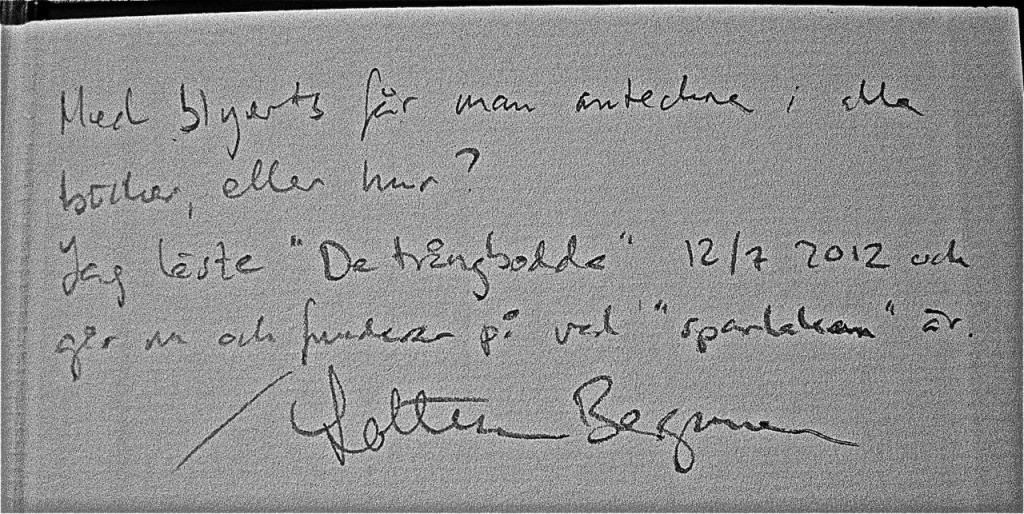 Med blyerts får man anteckna i alla
böcker, eller hur?
Jag läste "De trångbodda" 12/7 2012 och
går nu och funderar på vad "sparlakan" är.
/ Lotten Bergman